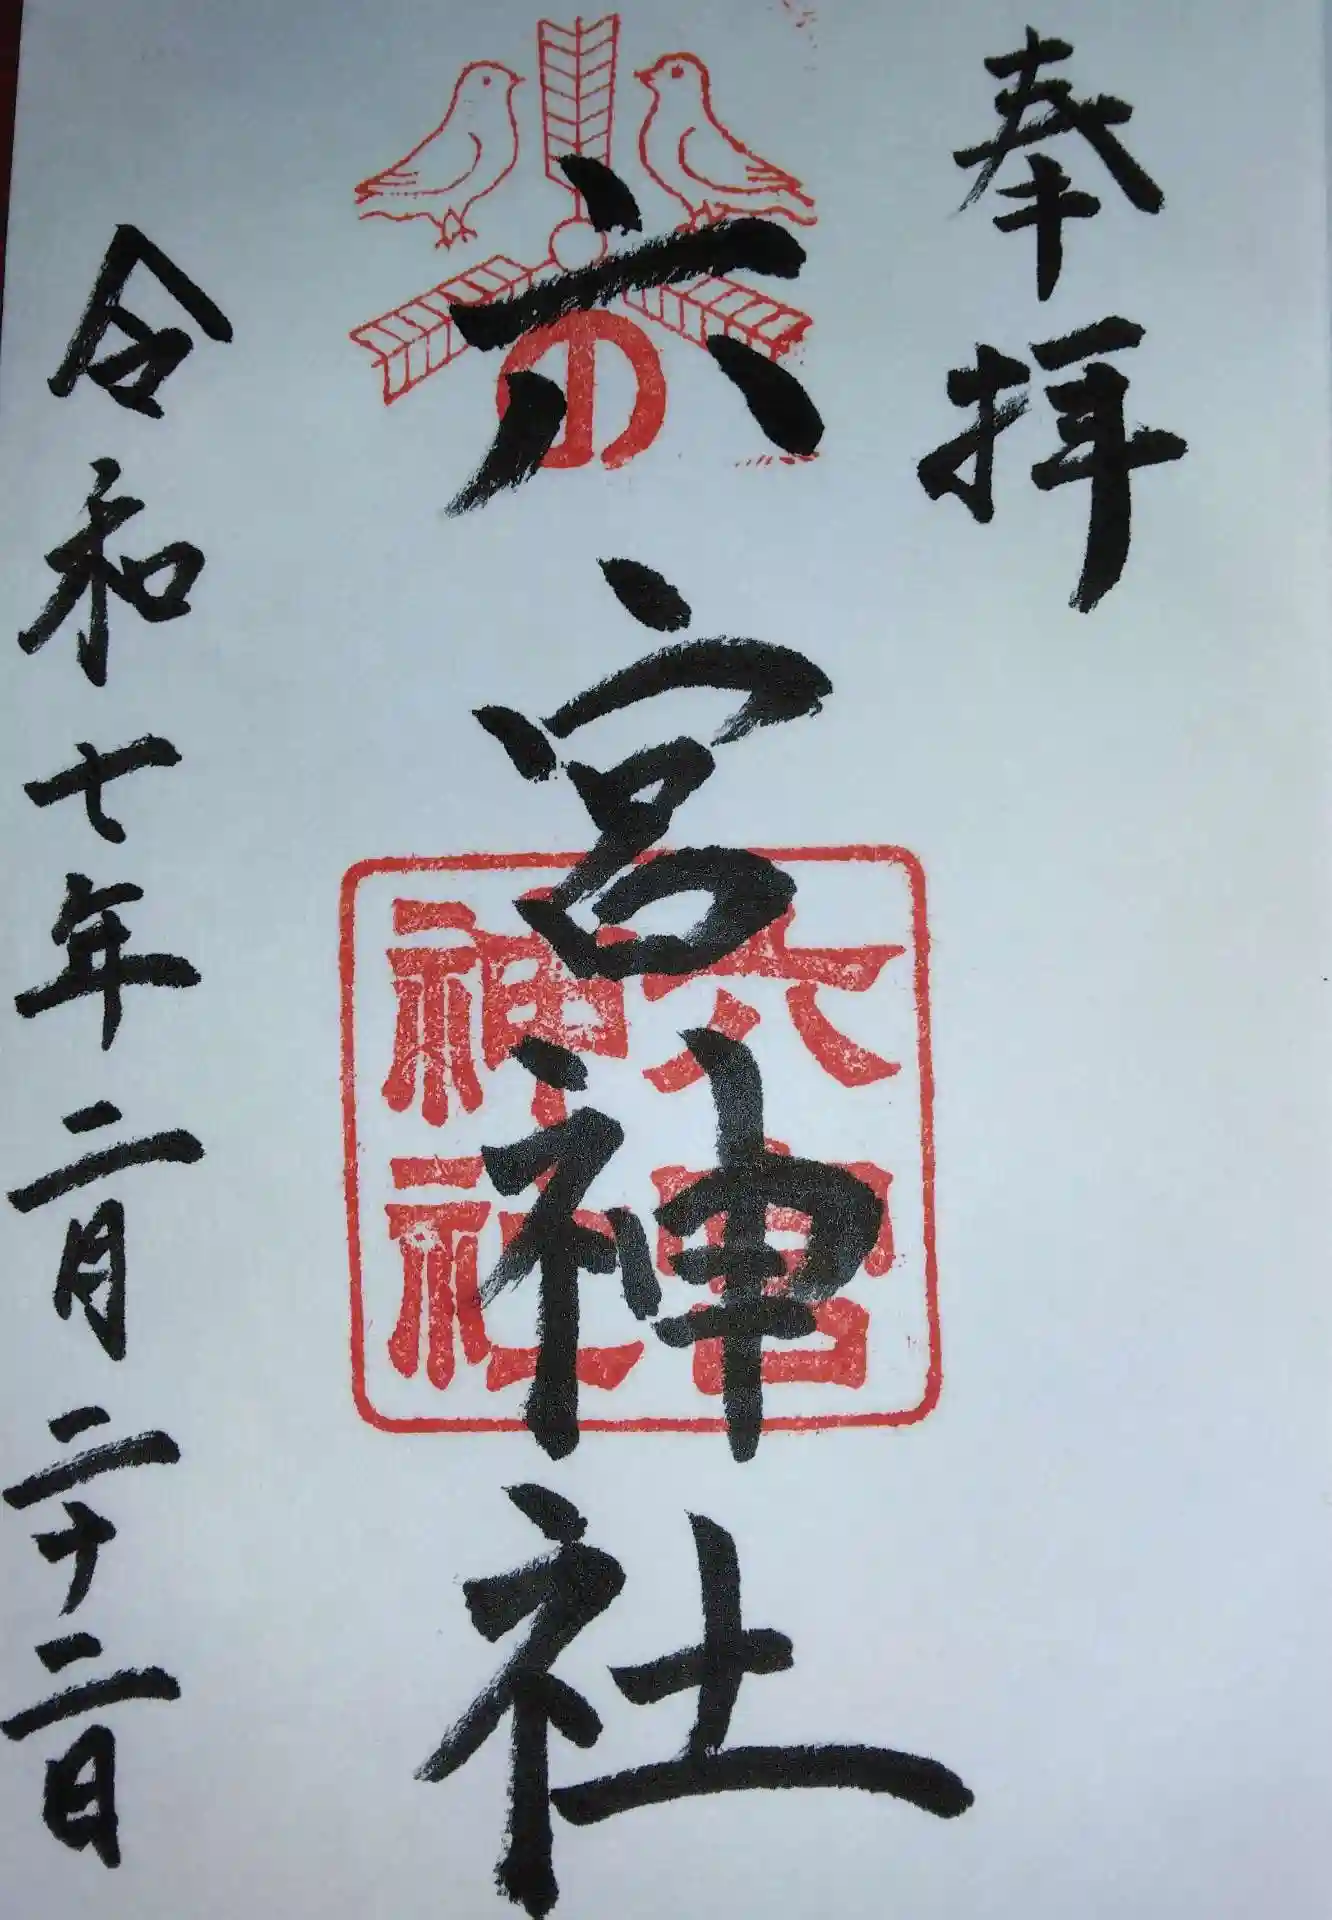 奉拝
六宮神社
六宮
神社
令和七年二月二十二日